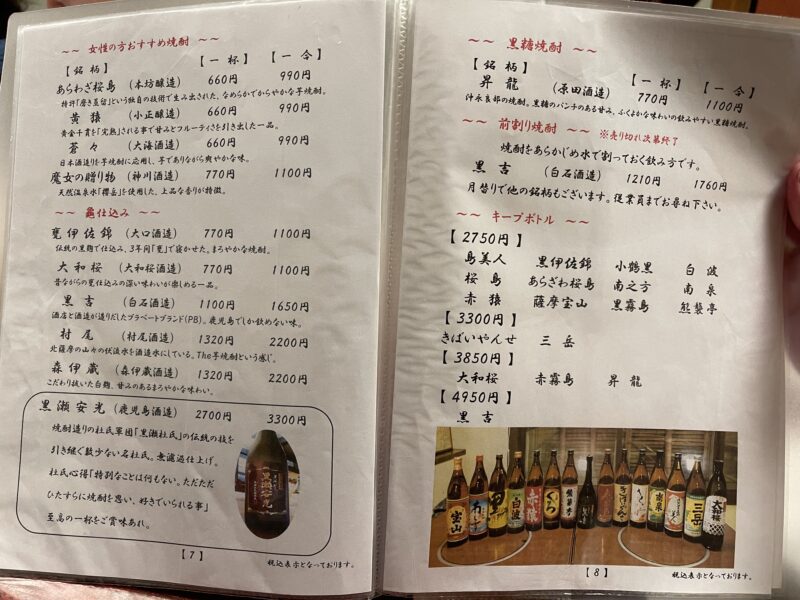 ～～ 女性の方おすすめ焼酎 ～～
【銘柄】 【一杯】 【一合】
あらわざ桜島 (本坊醸造) 660円 990円
特許「磨き蒸留」という独自の技術で生み出された、なめらかでからやかな芋焼酎。
黄猿 (小正醸造) 660円 990円
黄金千貫を「完熟」される事で甘みとフルーティさを引き出した一品。
蒼々 (大海酒造) 660円 990円
日本酒造りを芋焼酎に応用し、芋でありながら爽やかな味。
魔女の贈り物 (神川酒造) 770円 1100円
天然温泉水「櫻岳」を使用した、上品な香りが特徴。
～～ 亀仕込み ～～
甕伊佐錦 (大口酒造) 770円 1100円
伝統の黒麹で仕込み、3年間「甕」で寝かせた。まろやかな焼酎。
大和桜 (大和桜酒造) 770円 1100円
昔ながらの甕仕込みの深い味わいが楽しめる一品。
黒吉 (白石酒造) 1100円 1650円
酒店と酒造が造りだしたプラベートブランド(PB)。鹿児島でしか飲めない味。
村尾 (村尾酒造) 1320円 2200円
北薩摩の山々の伏流水を酒造水にしている。The芋焼酎という感じ。
森伊蔵 (森伊蔵酒造) 1320円 2200円
こだわり抜いた白麹、甘みのあるまろやかな味わい。
黒瀬安光 (鹿児島酒造) 2700円 3300円
焼酎造りの杜氏軍団「黒瀬杜氏」の伝統の技を
引き継ぐ数少ない名杜氏。無濾過仕上げ。
杜氏心得「特別なことは何もない。ただただ
ひたすらに焼酎を思い、好きでいられる事」
至高の一杯をご賞味あれ。
【7】
税込表示となっております。
～～ 黒糖焼酎 ～～
【銘柄】 【一杯】 【一合】
昇龍 (原田酒造) 770円 1100円
沖永良部の焼酎。黒糖のパンチのある甘み、ふくよかな味わいの飲みやすい黒糖焼酎。
～～ 前割り焼酎 ～～ ※売り切れ次第終了
焼酎をあらかじめ水で割っておく飲み方です。
黒吉 (白石酒造) 1210円 1760円
月替りで他の銘柄もございます。従業員までお尋ね下さい。
～～ キープボトル ～～
【2750円】
島美人 黒伊佐錦 小鶴黒 白波
桜島 あらざわ桜島 南之方 南泉
赤猿 薩摩宝山 黒霧島 熊襲亭
【3300円】
きばいやんせ 三岳
【3850円】
大和桜 赤霧島 昇龍
【4950円】
黒吉
宝山
白波
赤猿
南泉
三岳
大和桜
【8】
税込表示となっております。